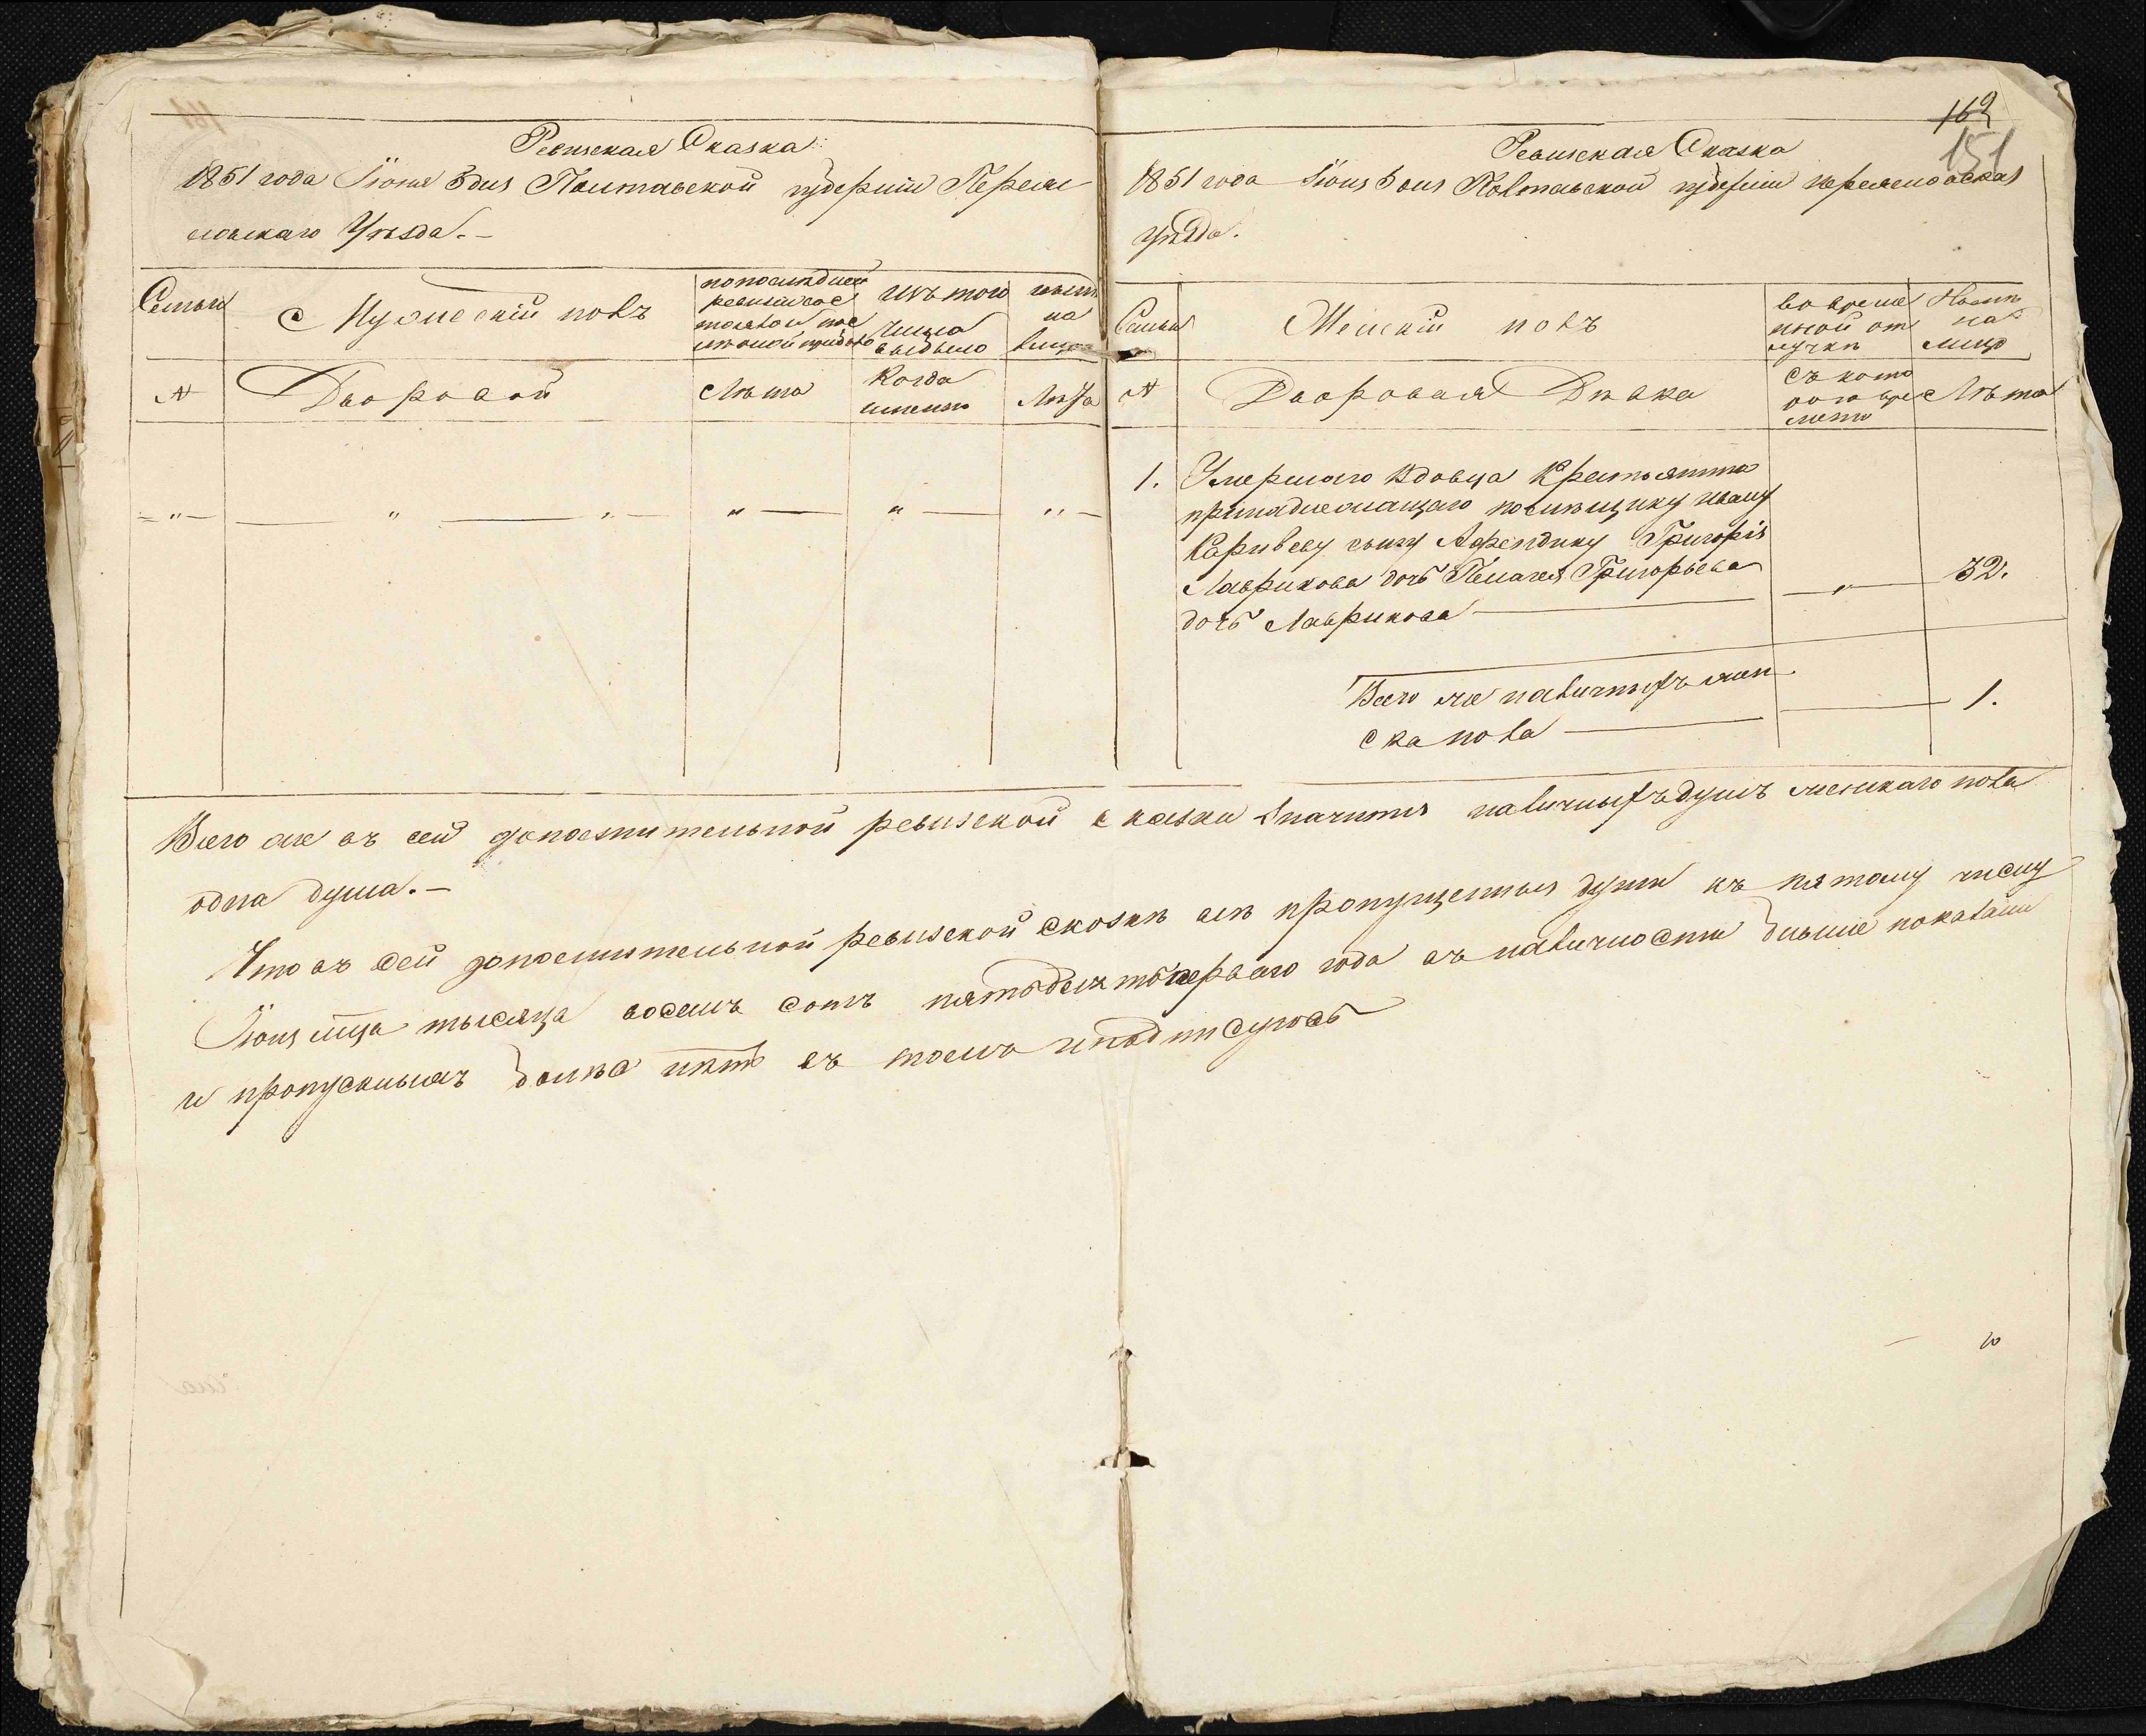 Ревизская Сказка
1851 года Іюня 5 дня Полтавской губерніи Переяс
ловскаго Уѣзда.-
Семьи
Мужескій полъ
по последней
ревизіи сос
тояло и пос
изъ того
числа
выбыло
ныне
на
лицо
№
Дворовой
Лѣта
Когда
именно
Лѣта
162
151
Ревизская Сказка
1851 года Іюня 5 дня Полтавской губерніи переясловскаго
уѣзда.
Семьи
Женскій полъ
во време
нной от
лучкѣ
Ныне
на
лицо
№
Дворовая Дѣвка
съ кото
рого вре
мени
Лѣта
1. Умершаго Вдовца Крестьянина
принадлежащаго помѣщику Ивану
сыну Афендику Григорія
Лаврикова дочь Пелагея Григорьева
дочь Лаврикова 32.
Всего же наличныхъ жен
ска пола 1.
Всего же въ сей дополнительной ревизской сказки значится наличныхъ душъ женскаго пола
одна душа.-
Что въ сей дополнительной ревизской сказкѣ всѣ пропущенныя души къ пятому числу
Іюня мца тысяча восемъ сотъ пятьдесятъ перваго года въ наличности бывшіе показани
и пропускныхъ болѣе нѣтъ въ томъ и подписуюсь